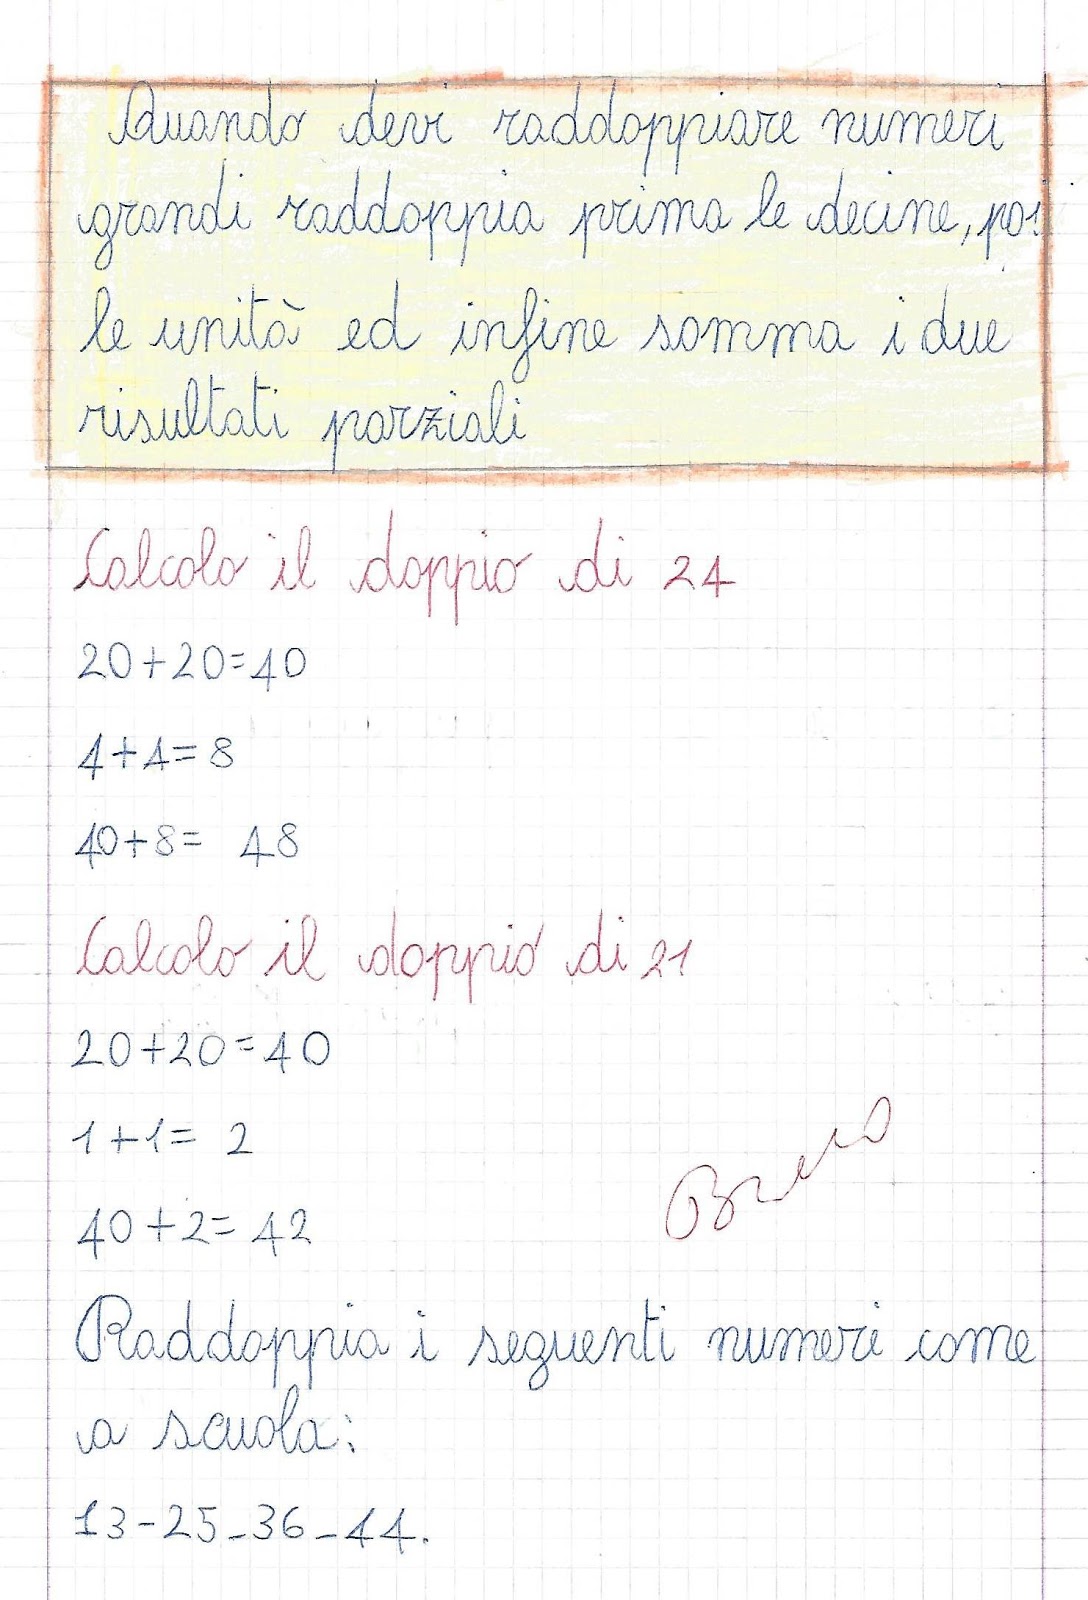 Quando devi raddoppiare numeri
grandi raddoppia prima le decine, poi
le unità ed infine somma i due
risultati parziali
Calcolo il doppio di 24
20+20=40
4+4=8
40+8= 48
Calcolo il doppio di 21
20+20=40
1+1= 2
40+2=42
Bravo
Raddoppia i seguenti numeri come
a scuola:
13-25-36-44.